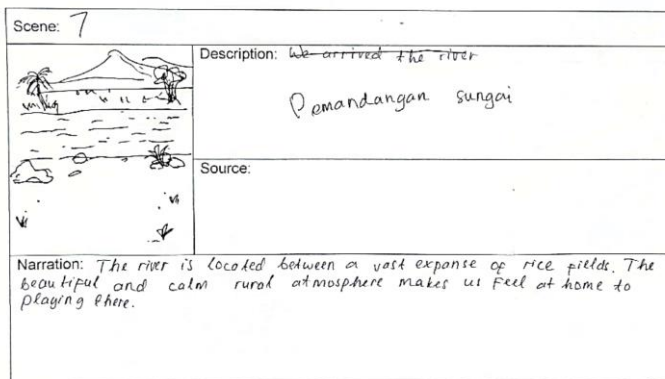 Scene: 7
Description: We arrived the river
Pemandangan sungai
Source:
Narration: The river is located between a vast expanse of rice fields. The
beautiful and calm rural atmosphere makes us feel at home to
playing there.